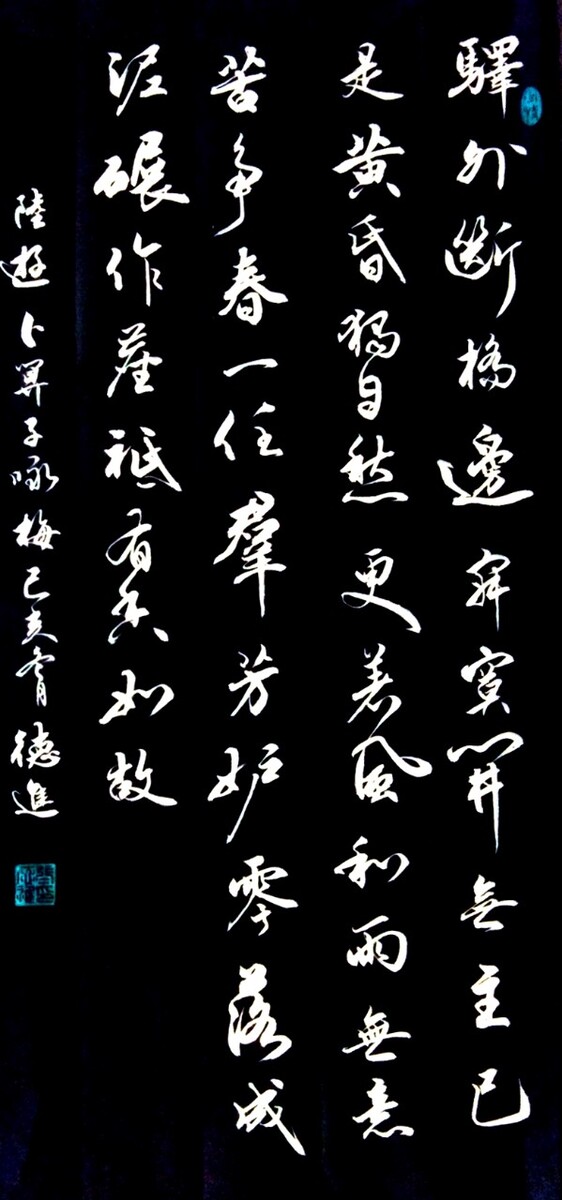 驛外斷橋邊寂寞開無主已
是黄昏獨自愁更著風和雨無意
苦爭春一任羣芳妒零落成
泥碾作塵祗有香如故
陸游卜算子咏梅己亥膏德進